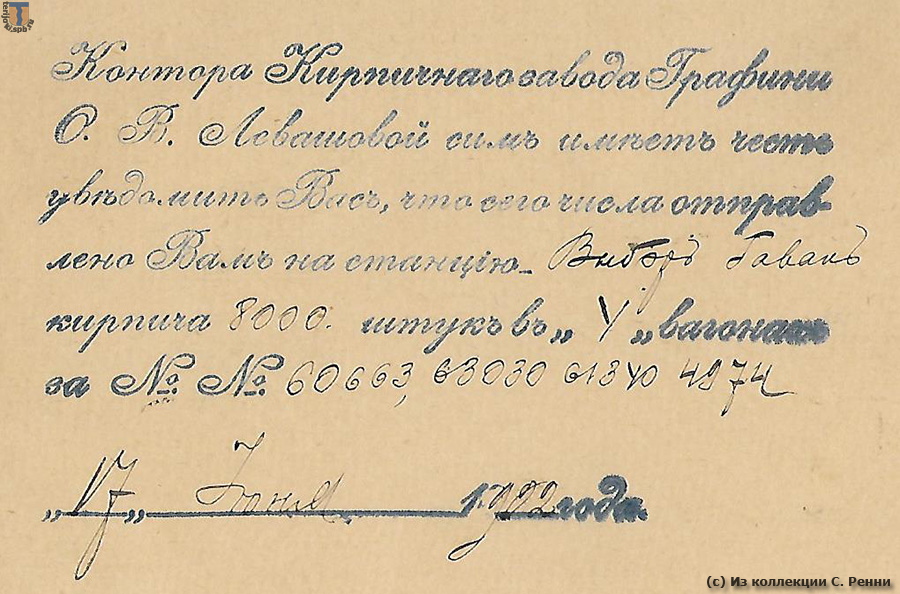 Контора Кирпичнаго завода Графини
О. В. Левашовой симъ имѣетъ честь
увѣдомить Васъ, что сего числа отправ-
лено Вамъ на станцію Выборъ Гавань
кирпича 8000. штукъ въ „ 4 „ вагонахъ
за №. №. 60663, 63030 61340 4974
„17„ Іюня 1902 года.
(c) Из коллекции С. Ренни